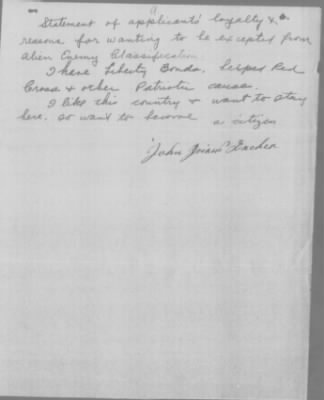 Statement of applicants' loyalty &
reasons for wanting to be excepted from
alien Enemy Classification.
I have Liberty Bonds, helped Red
Cross & other Patriotic causes.
I like this country & want to stay
here, so want to become a citizen
John